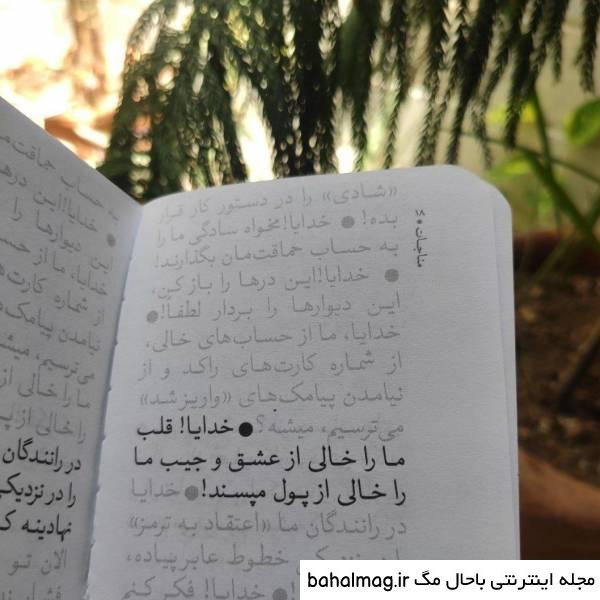 به حساب حماقت‌ما
خدایا! این درها
این دیوارها را
خدایا، ما از حسا
از شماره کارت‌ه
نیامدن پیامک‌ها
می‌ترسیم، میشه
ما را خالی از
را خالی از پو
در رانندگان
را در نزدیکی
نهادینه ک
الان تو
«شادی» را در دستور کار قرار
بده! ● خدایا! مخواه سادگی ما را
به حساب حماقت‌مان بگذارند!
● خدایا! این درها را باز کن،
این دیوارها را بردار لطفاً! ●
خدایا، ما از حساب‌های خالی،
از شماره کارت‌های راکد و از
نیامدن پیامک‌های «واریز شد»
می‌ترسیم، میشه؟ ● خدایا! قلب
ما را خالی از عشق و جیب ما
را خالی از پول مپسند! ● خدایا
در رانندگان ما «اعتقاد به ترمز»
را در نزدیکی خطوط عابر پیاده،
! ● خدایا! فکر کنم
مناجات
مجله اینترنتی باحال مگ bahalmag.ir